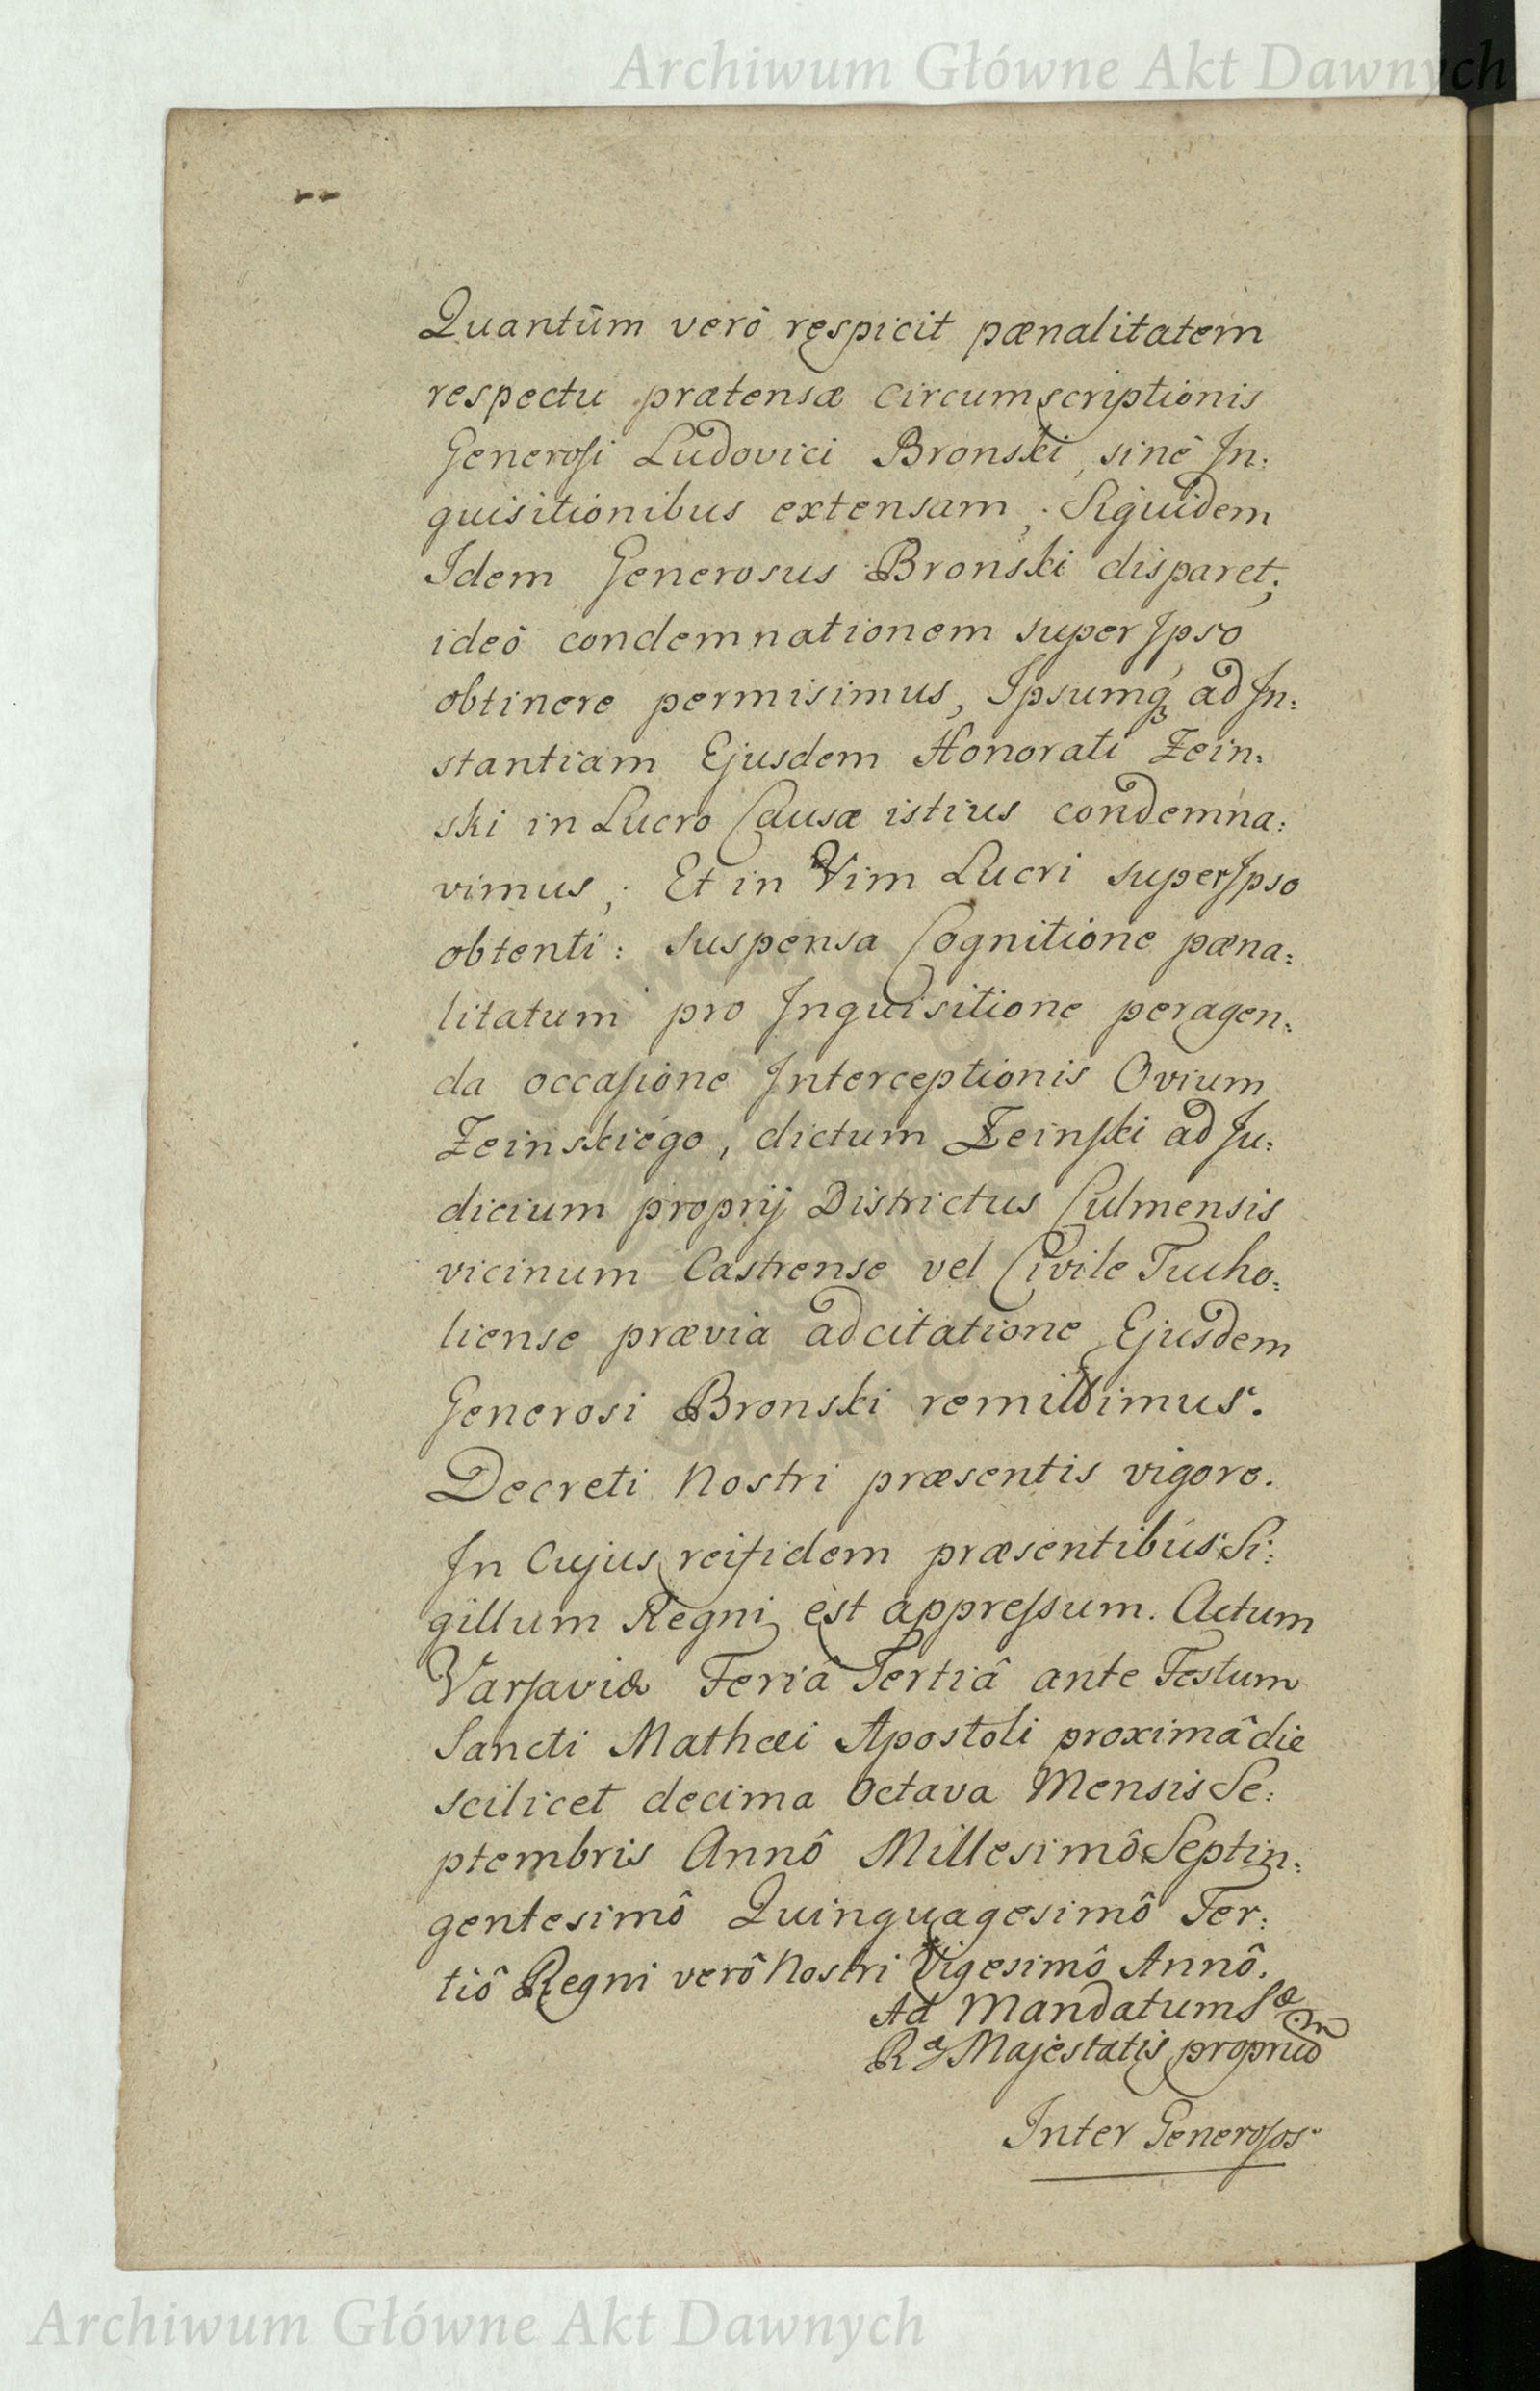 Archiwum Główne Akt Dawnych
Quantûm verô respicit pœnalitatem
respectu prætensæ circumscriptionis
Generosi Ludovici Bronski, sinè In:
quisitionibus extensam; Siquidem
Idem Generosus Bronski disparet;
ideô condemnationem super Ipso
obtinere permisimus, Ipsumq́ ad In:
stantiam Ejusdem Honorati Zein:
ski in Lucro Causæ istius condemna:
vimus; Et in Vim Lucri super Ipso
obtenti: suspensa Cognitione pœna:
litatum pro Inquisitione peragen:
da occasione Interceptionis Ovium
Zeinskiego, dictum Zeinski ad Ju:
dicium proprij Districtus Culmensis
vicinum Castrense vel Civile Tucho:
liense prævia adcitatione Ejusdem
Generosi Bronski remittimus.
Decreti Nostri præsentis vigore.
In Cujus rei fidem præsentibus Si:
gillum Regni est appressum. Actum
Varsaviæ Feriâ Tertiâ ante Festum
Sancti Mathæi Apostoli proximâ die
scilicet decima Octava Mensis Se:
ptembris Annô Millesimô Septin:
gentesimô Quinquagesimô Ter:
tiô Regni verô Nostri Vigesimô Annô.
Ad Mandatum Sæ
Ræ Majestatis proprium
Inter Generosos
Archiwum Główne Akt Dawnych